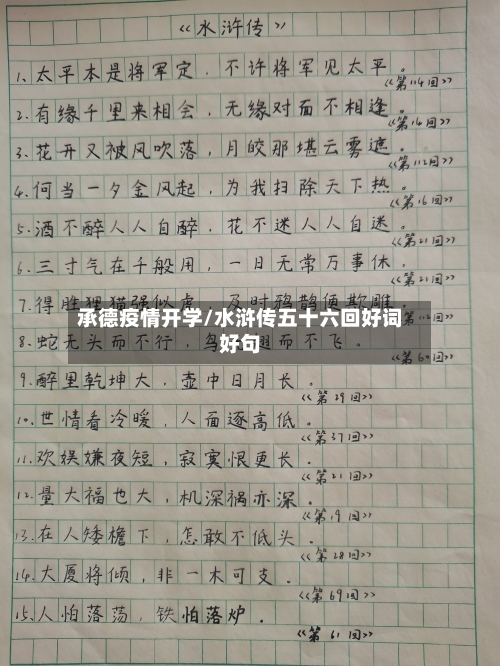 《水浒传》
1、太平本是将军定，不许将军见太平。
《第114回》
2、有缘千里来相会，无缘对面不相逢。
《第14回》
3、花开又被风吹落，月皎那堪云雾遮。
《第112回》
4、何当一夕金风起，为我扫除天下热。
《第16回》
5、酒不醉人人自醉，花不迷人人自迷。
《第21回》
6、三寸气在千般用，一日无常万事休。
《第21回》
7、得胜狸猫强似虎，及时鸦鹊便欺雕。
承德疫情开学/水浒传五十六回好词
好句
8、蛇无头而不行，鸟无翅而不飞。
《第60回》
9、醉里乾坤大，壶中日月长。
《第29回》
10、世情看冷暖，人面逐高低。
《第37回》
11、欢娱嫌夜短，寂寞恨更长。
《第21回》
12、量大福也大，机深祸亦深。
《第19回》
13、在人矮檐下，怎敢不低头。
《第28回》
14、大厦将倾，非一木可支。
《第69回》
15、人怕落荡，铁怕落炉。
《第61回》